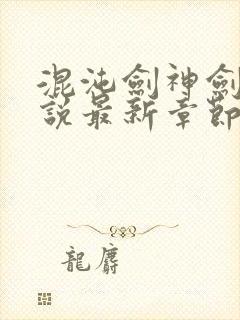 混沌劍神劍
說最新章節
龍麝